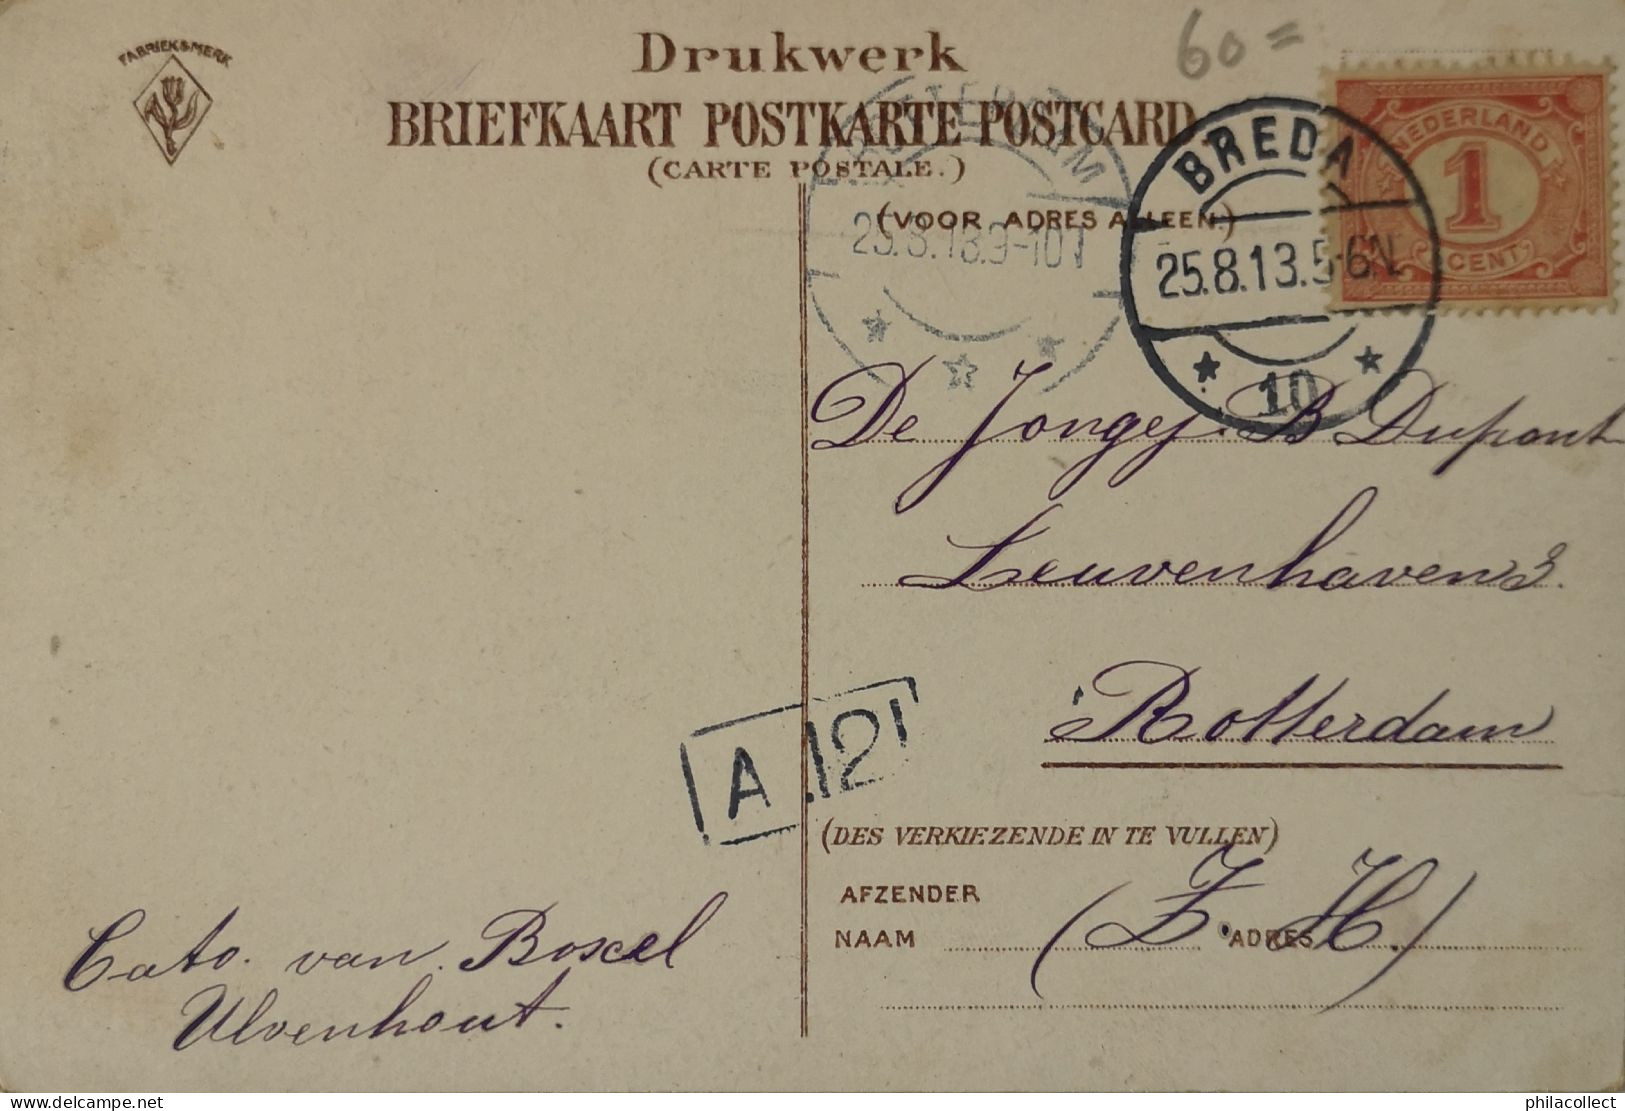 FABRIEKSMERK
Drukwerk
60=
BRIEFKAART POSTKARTE POSTCARD.
(CARTE POSTALE.)
(VOOR ADRES ALLEEN.)
ROTTERDAM
25.8.13.9-10V
BREDA
25.8.13.5-6N
10
NEDERLAND
1
CENT
De Jongej. B Dupont
Leuvenhaven
Rotterdam
A 21
(DES VERKIEZENDE IN TE VULLEN)
AFZENDER
NAAM
ADRES
(Z. H.)
Cato. van Boxel
Ulvenhout.
philacollect